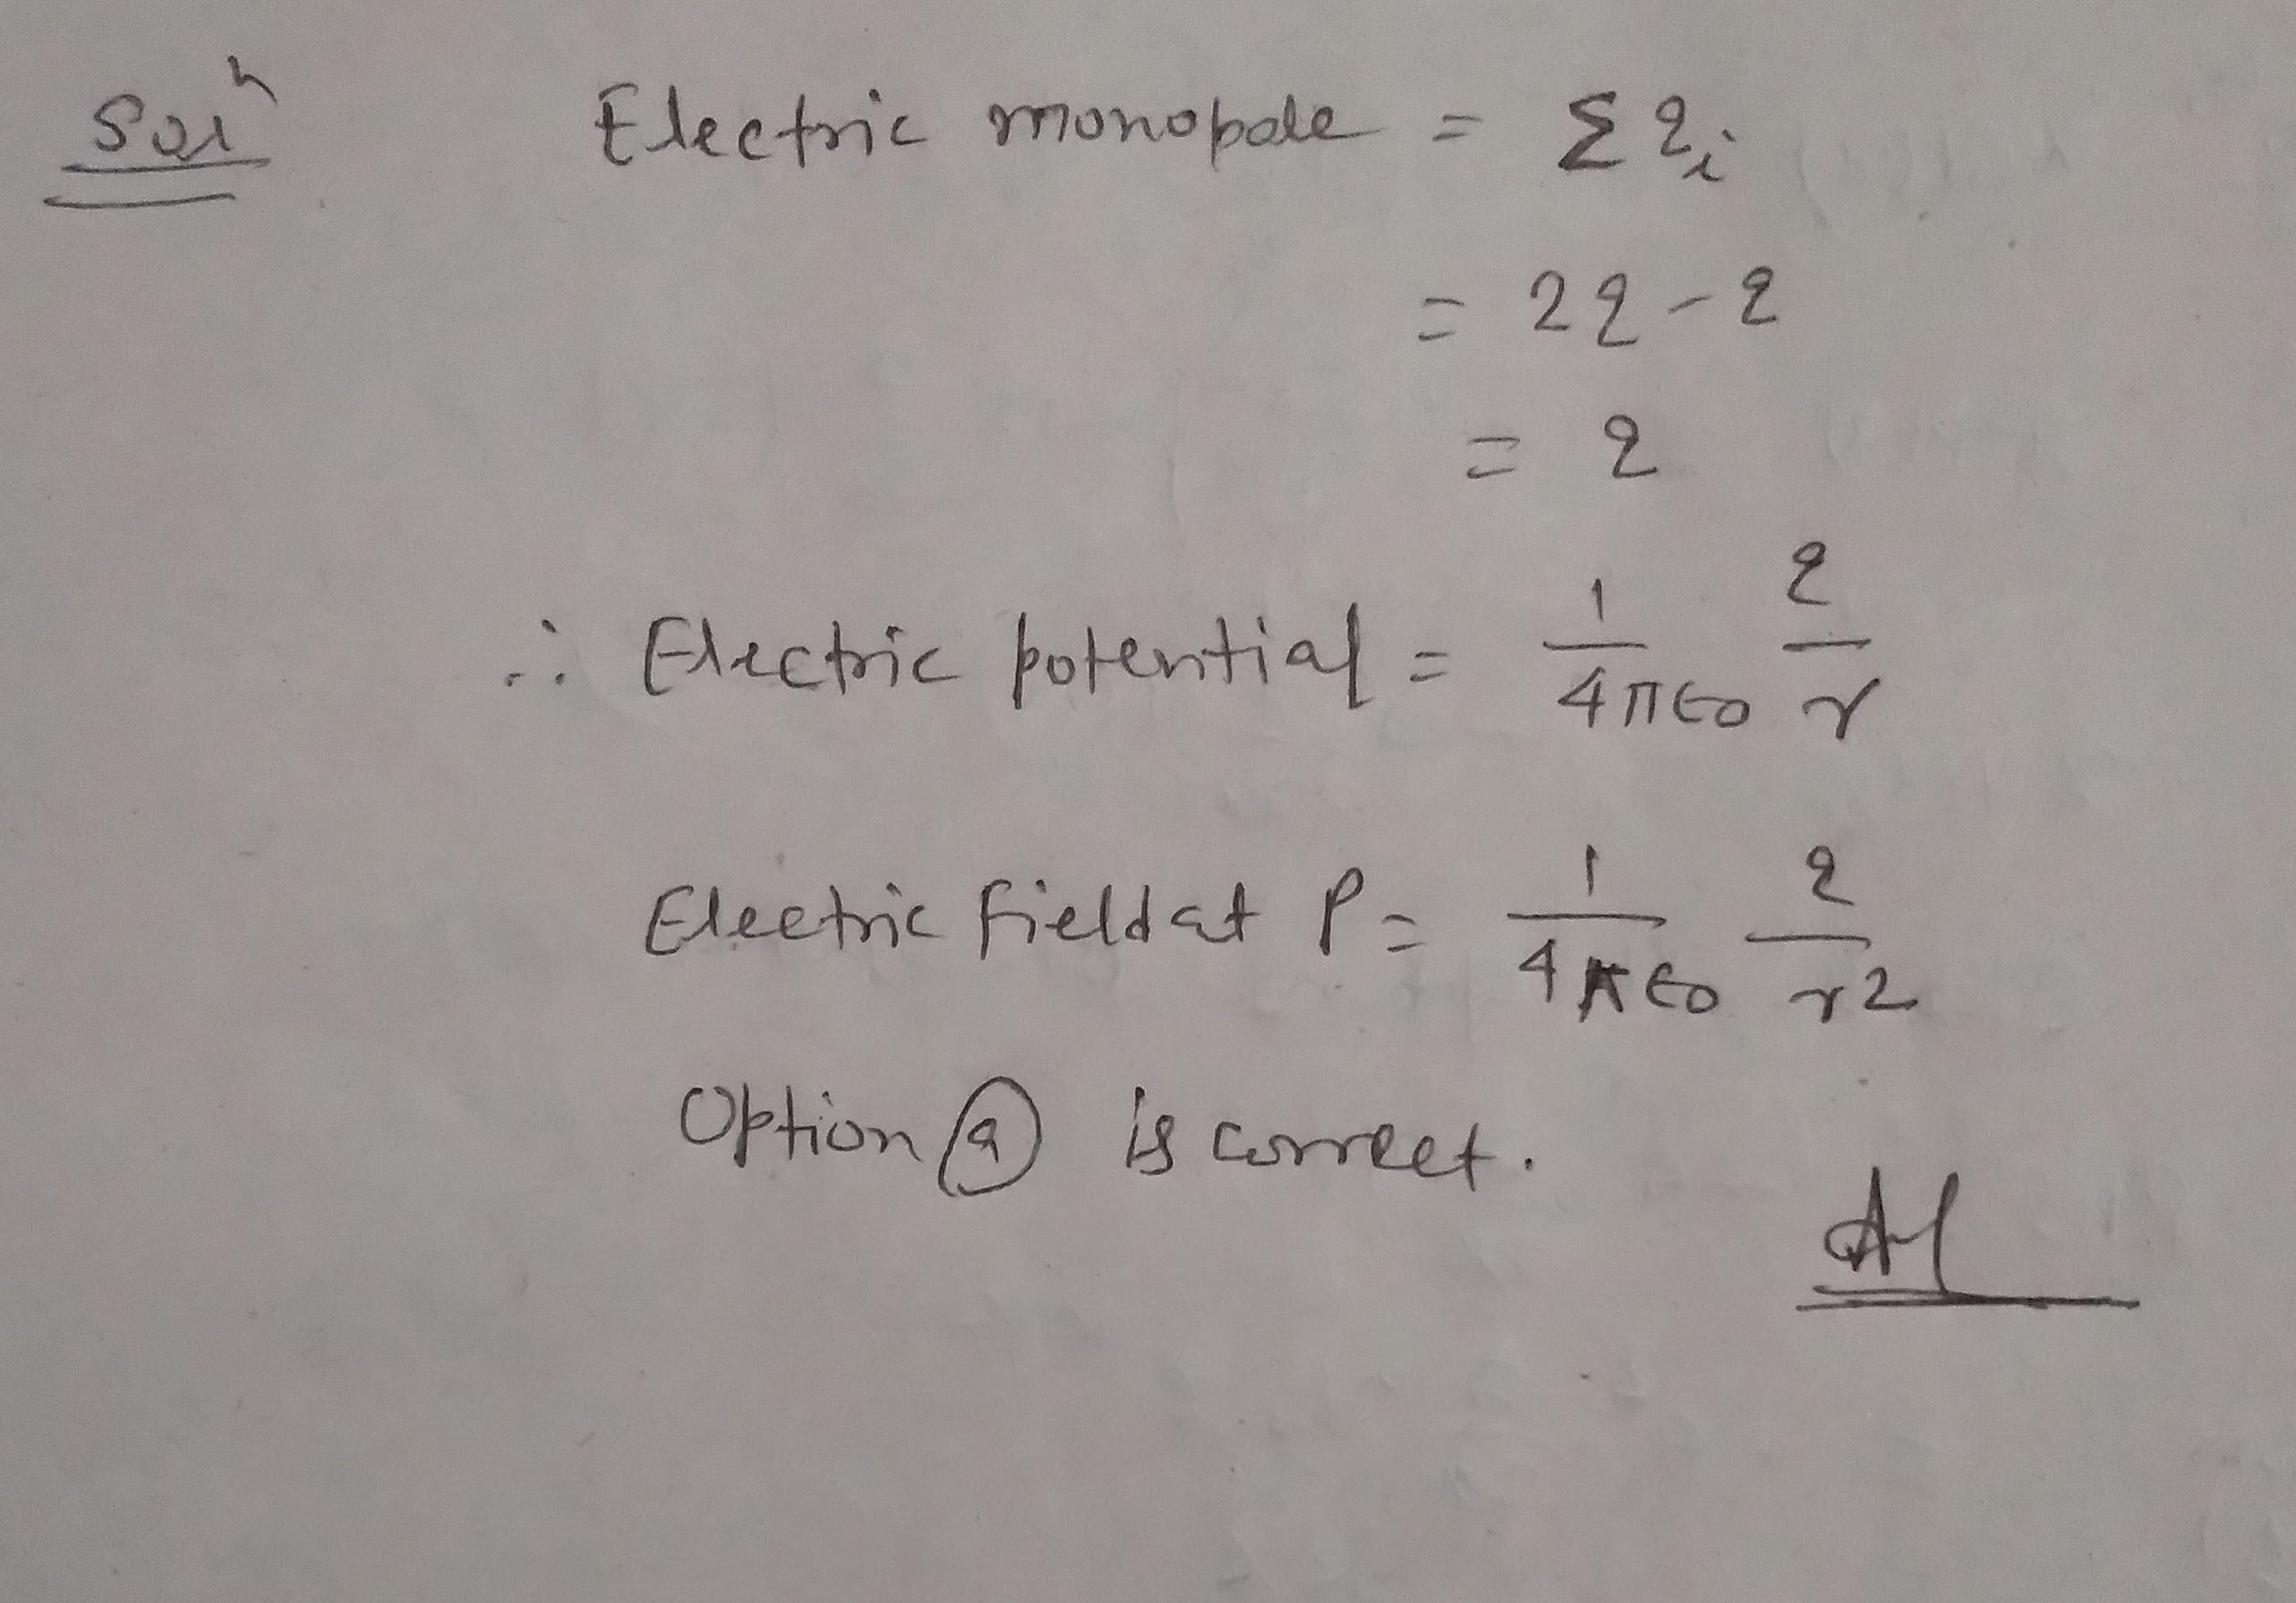 Solⁿ Electric monopole = Σ qᵢ
= 2q - q
= q
∴ Electric potential = 1/4πϵ₀ q/r
Electric field at P = 1/4πϵ₀ q/r²
Option (a) is correct.